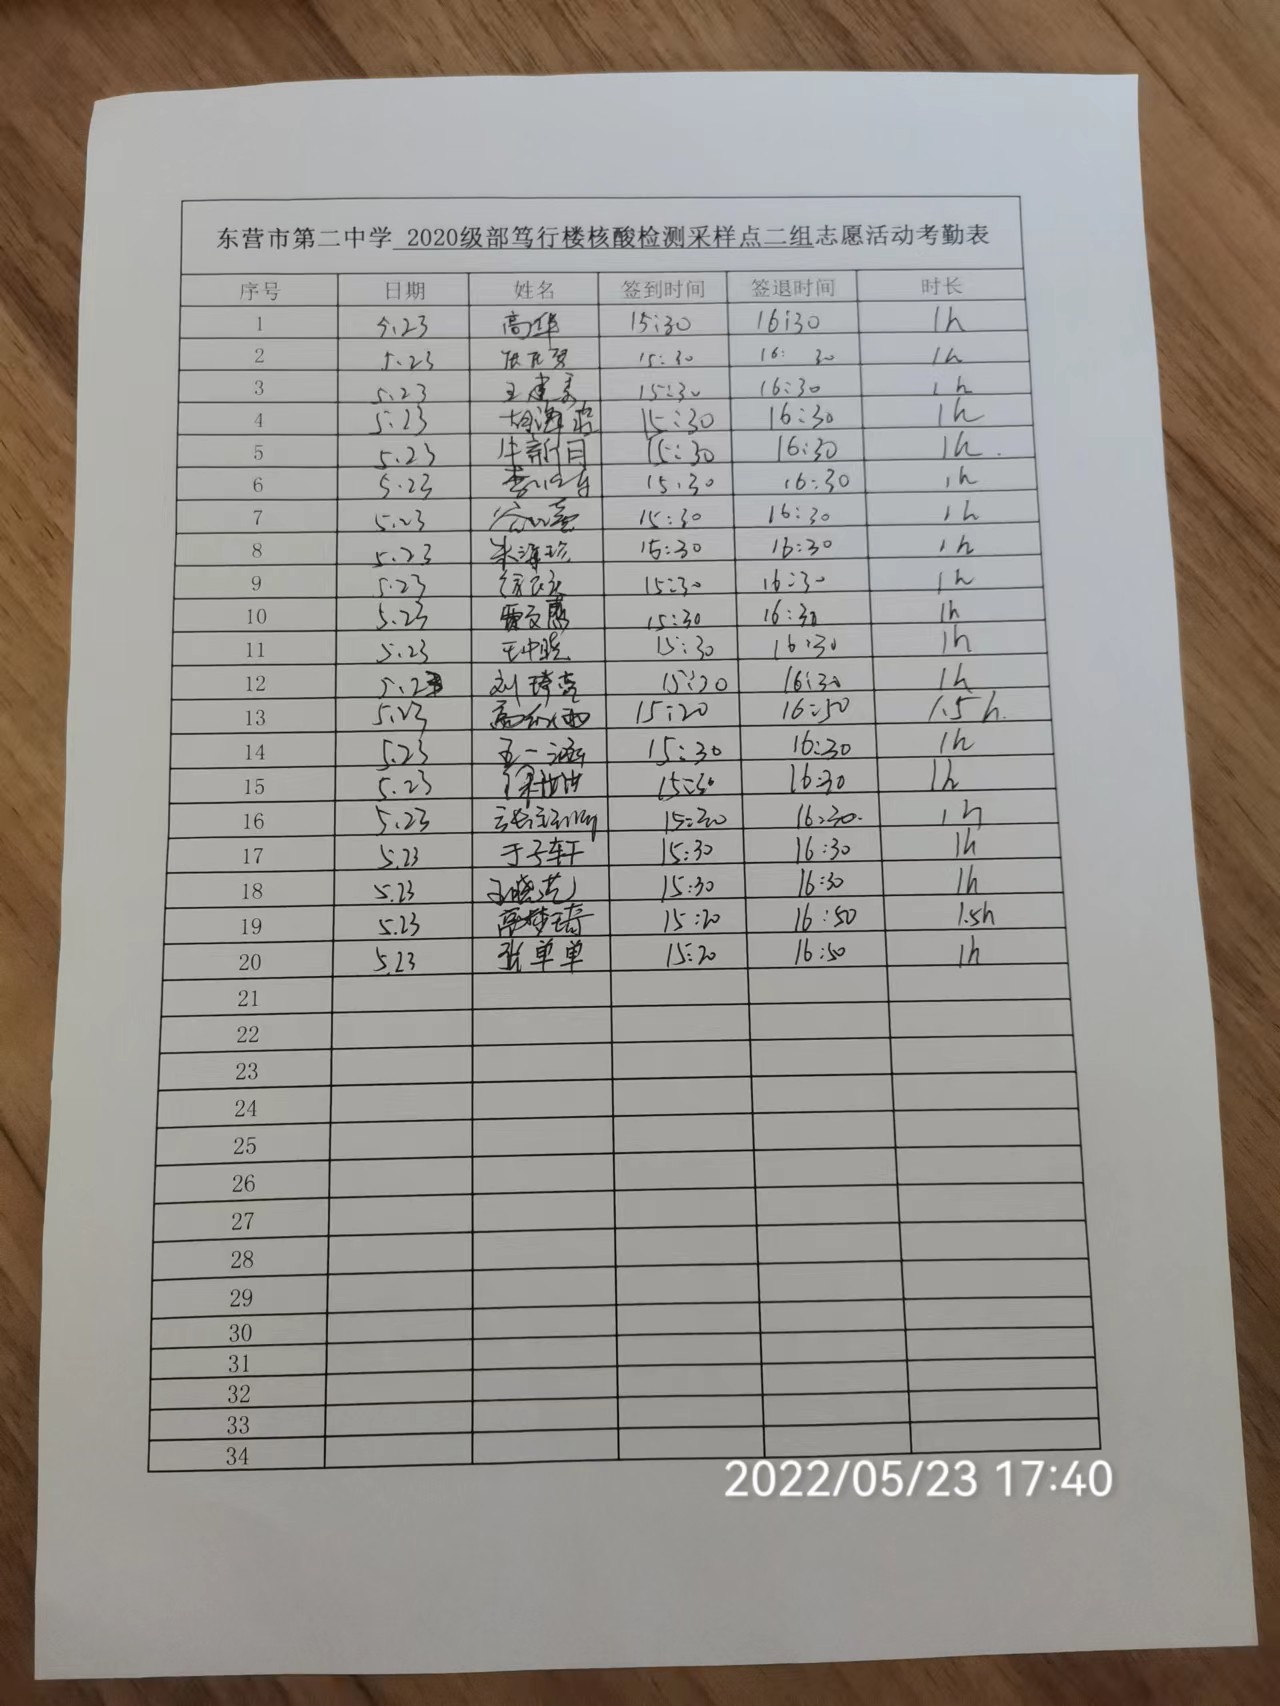 东营市第二中学 2020级部笃行楼核酸检测采样点二组志愿活动考勤表
序号 日期 姓名 签到时间 签退时间 时长
1 5.23 高华 15:30 16:30 1h
2 5.23 15:30 16: 30 1h
3 5.23 王建美 15:30 16:30 1h
4 5.23 15:30 16:30 1h
5 5.23 牛新同 15:30 16:30 1h.
6 5.23 15:30 16:30 1h
7 5.23 15:30 16:30 1h
8 5.23 朱海珍 15:30 16:30 1h
9 5.23 15:30 16:30 1h
10 5.23 15:30 16:30 1h
11 5.23 王中晓 15:30 16:30 1h
12 5.23 刘琦 16:30 1h
13 5.23 15:20 16:50 1.5h.
14 5.23 王一涵 15:30 16:30 1h
15 5.23 15:30 16:30 1h
16 5.23 16:30. 1h
17 5.23 于子轩 15:30 16:30 1h
18 5.23 王晓 15:30 16:30 1h
19 5.23 高梦琦 15:20 16:50 1.5h
20 5.23 张单单 15:20 16:50 1h
21
22
23
24
25
26
27
28
29
30
31
32
33
34
2022/05/23 17:40